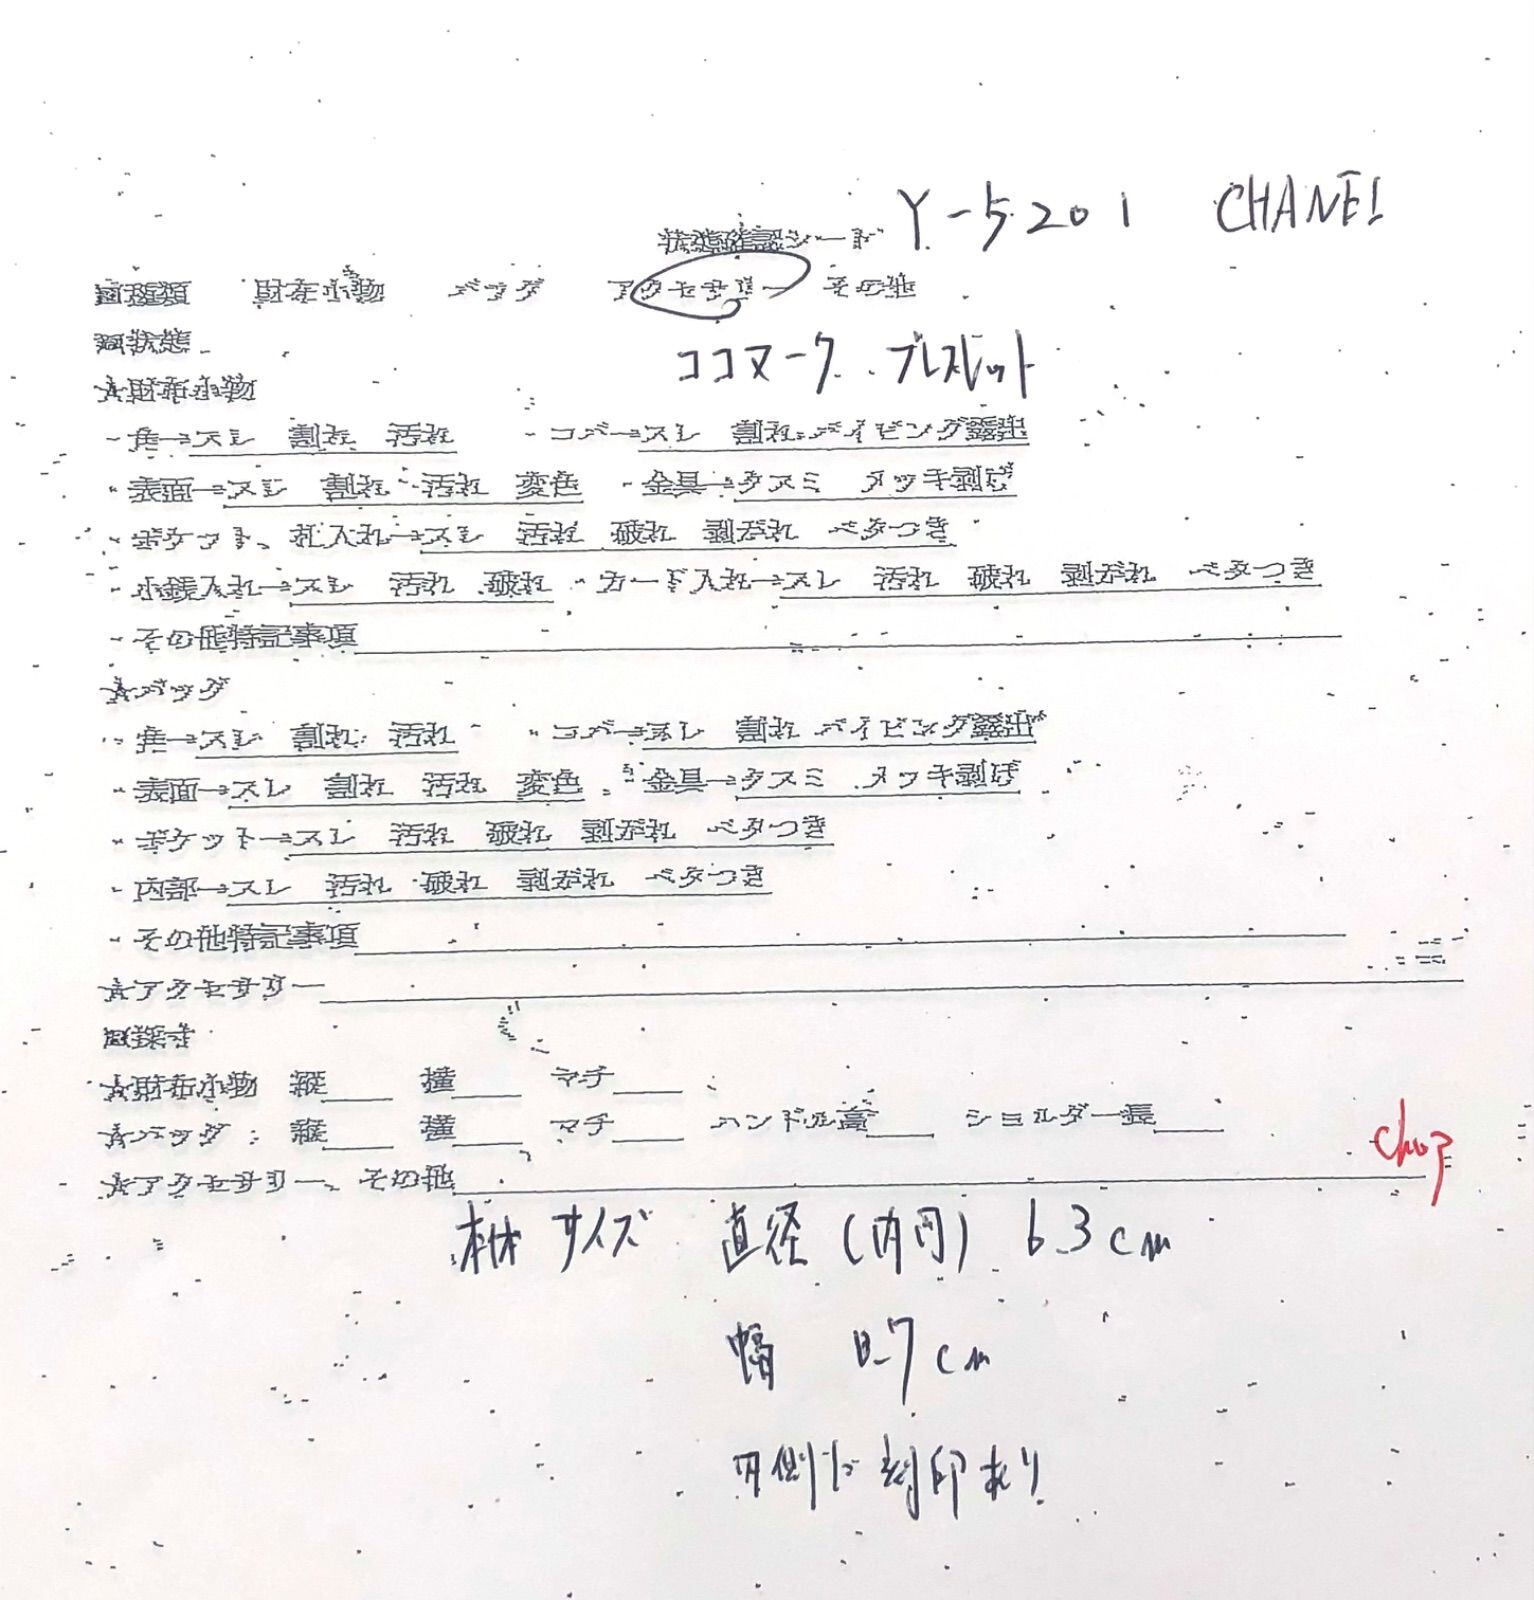 状態確認シート Y-5201 CHANEL
■種類 財布小物 バッグ アクセサリー その他
■状態
ココマーク ブレスレット
★財布小物
・角→スレ 割れ 汚れ ・コバ→スレ 割れ パイピング露出
・表面→スレ 割れ 汚れ 変色 ・金具→クスミ メッキ剥げ
・ポケット、札入れ→スレ 汚れ 破れ 剥がれ ベタつき
・小銭入れ→スレ 汚れ 破れ ・カード入れ→スレ 汚れ 破れ 剥がれ ベタつき
・その他特記事項
★バッグ
・角→スレ 割れ 汚れ ・コバ→スレ 割れ パイピング露出
・表面→スレ 割れ 汚れ 変色 ・金具→クスミ メッキ剥げ
・ポケット→スレ 汚れ 破れ 剥がれ ベタつき
・内部→スレ 汚れ 破れ 剥がれ ベタつき
・その他特記事項
★アクセサリー
■採寸
★財布小物 縦 横 マチ
★バッグ 縦 横 マチ ハンドル高 ショルダー長
★アクセサリー、その他
本体サイズ 直径(内円) 6.3cm
幅 0.7cm
内側に刻印あり